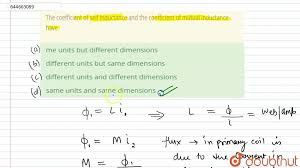 644663089
The coefficient of self inductance and the coefficient of mutual inductance have
(a) me units but different dimensions
(b) different units but same dimensions
(c) different units and different dimensions
(d) same units and same dimensions
ϕ₁ = L i₁ ⇒ L = ϕ₁ / i = web/amp
ϕ₁ = M i₂ flux → in primary coil is
M = ϕ₁ due to the current in
doubtnut